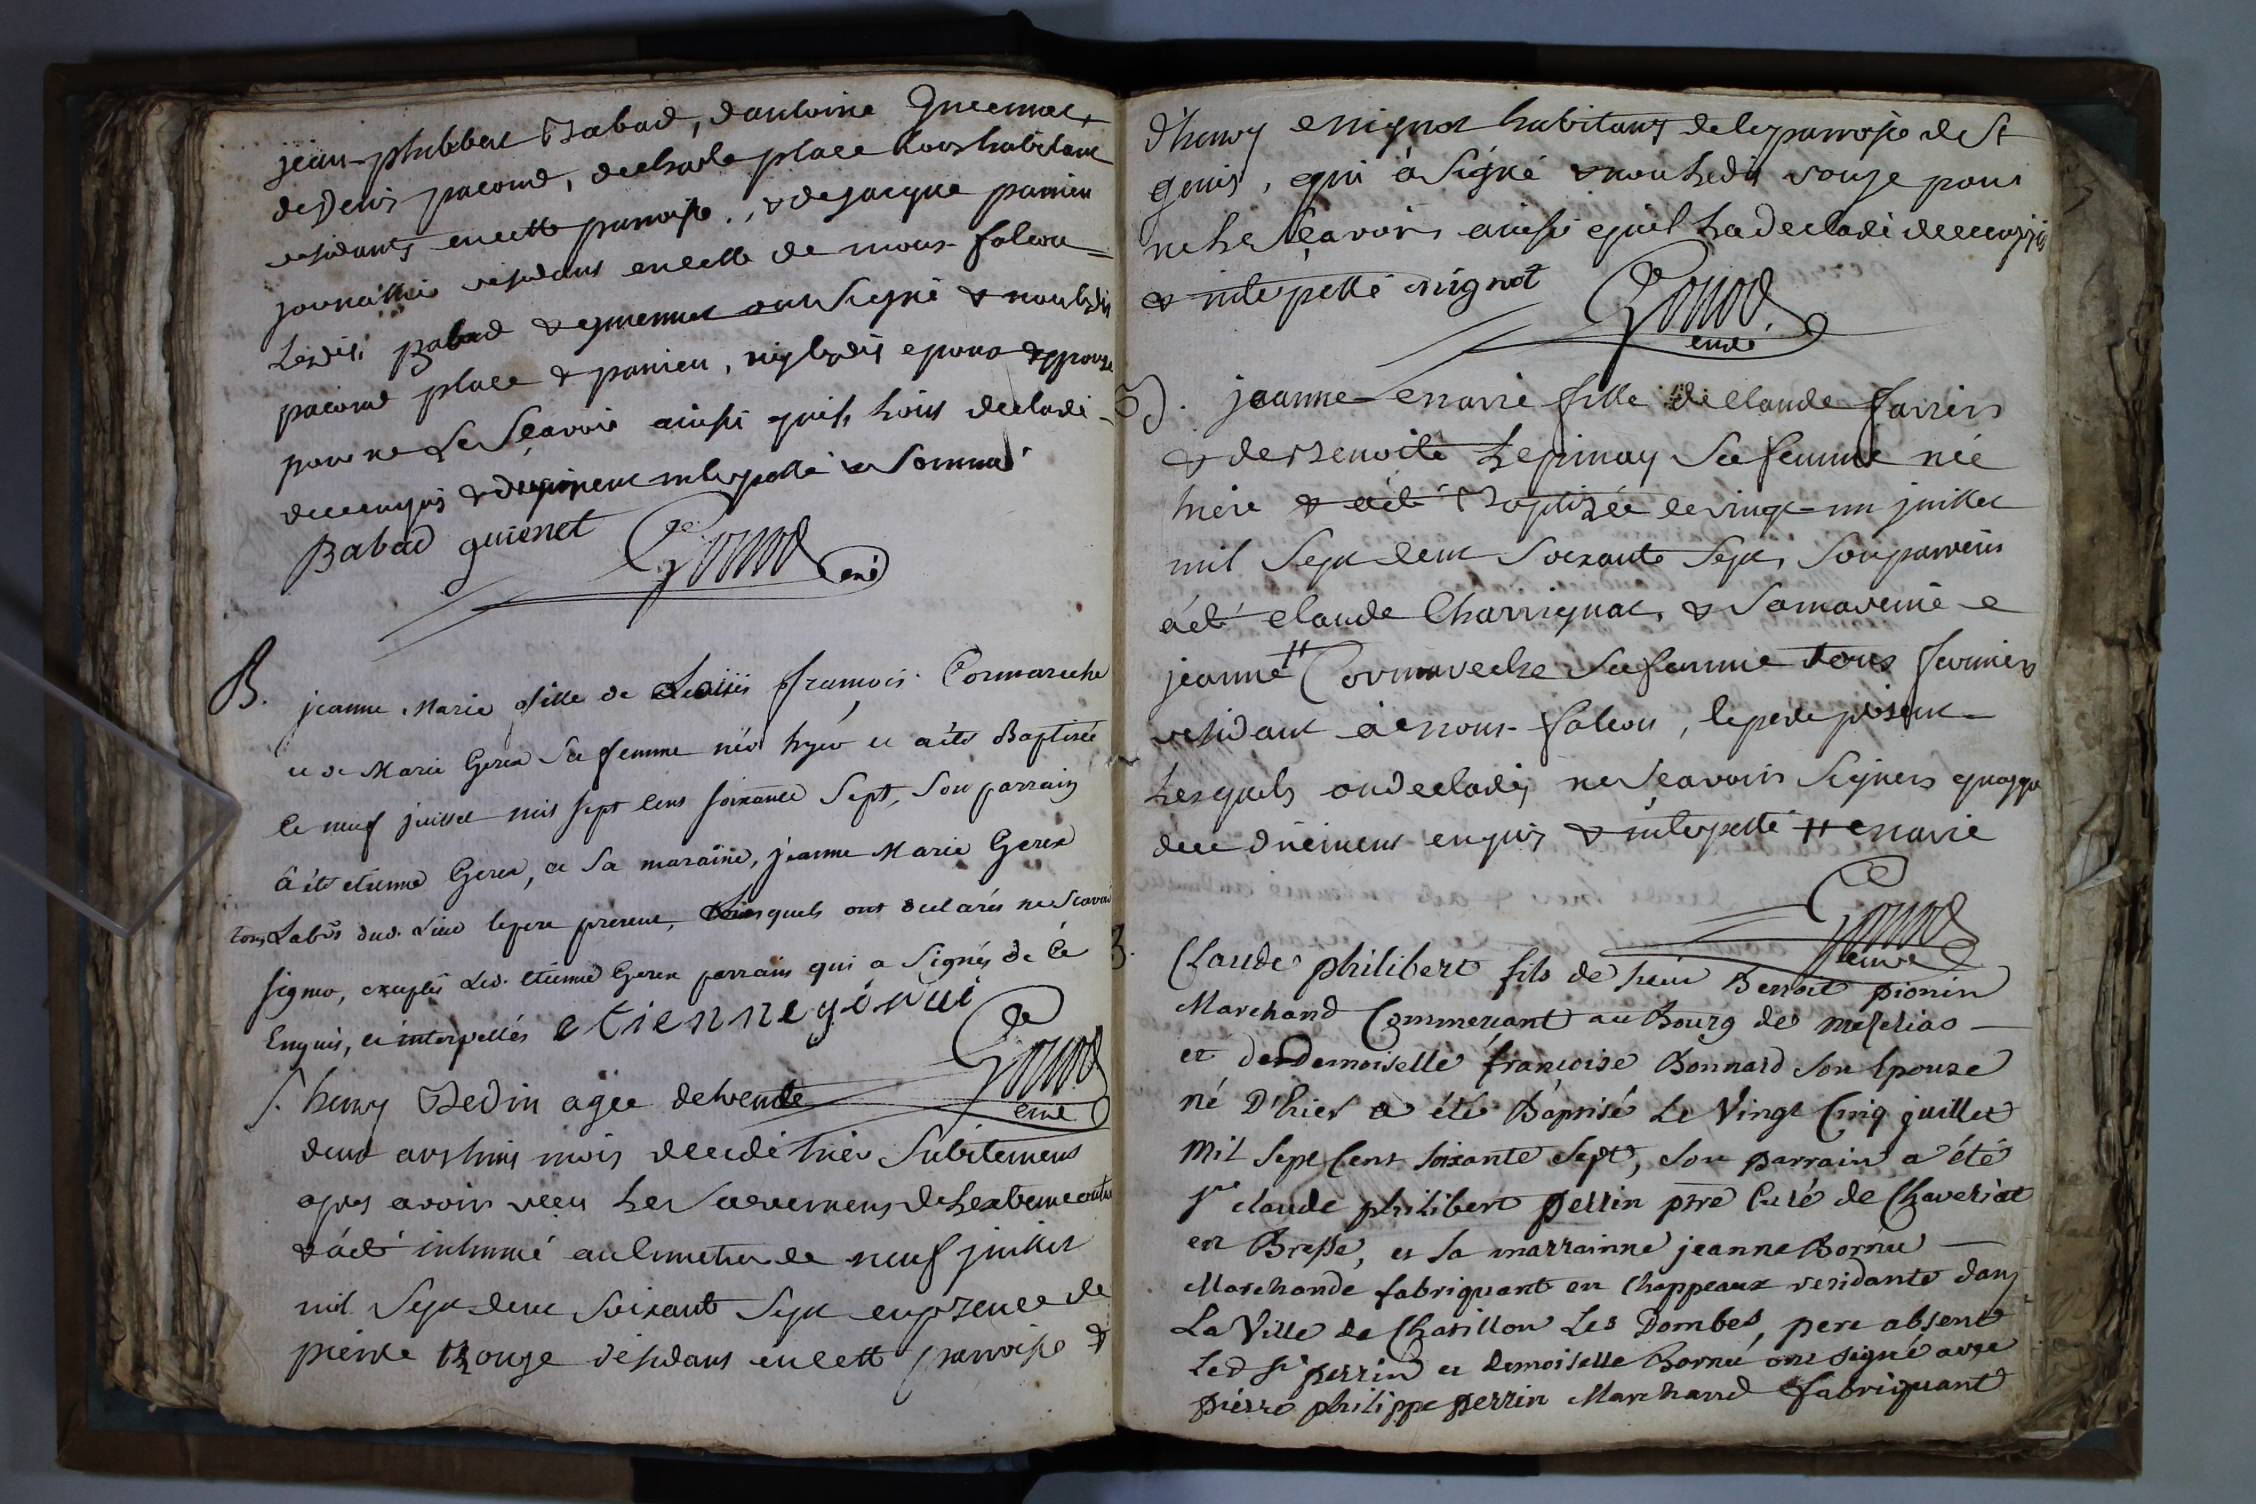 jean-philibert Babad, d'antoine Guienet
de denis pacoud, de charle place tous habitant
residants en cette parroisse, & de jacque panieu
journallier residant en celle de mons-falcon
Lesdits Babad & guiennet ont signé & non lesdits
pacoud place & panieu, ny lesdits epoux & epouse
pour ne le sçavoir ainsi quils l'ont declaré
de ce enquis & interpellé & sommé
Babad guienet Gonod curé
B. jeanne Marie fille de Louis françois Cormareche
et de Marie Gerer sa femme née hyer et a été Baptisée
le neuf juillet mil sept cens soixante sept, son parrain
à été etienne Gerer, et sa maraine, jeanne Marie Gerer
tous Labrs dud. Lieu le pere present, Lesquels ont declarés ne sçavoir
signer, exceptés led. etienne Gerer parrain qui a signés de ce
Enquis, et interpellés etienne gérrer
Gonod curé
S. henry Bedin agée de trente
deux ans huit mois decedé hier subitement
apres avoir reçu le sacrement de l'extreme onction
& à été inhumé au cimetiere le neuf juillet
mil sept cent soixante sept en presence de
pierre Rouge residant en cette parroisse &
d'henry mignot habitant de la parroisse de St
genis, qui à signé & non ledit rouge pour
ne le sçavoir ainsi quil la declaré de ce enquis
& interpellé mignot Gonod
curé
B. jeanne-marie fille de claude farrier
& de Benoite Lepinay sa femme née
hier & a été Baptisée le vingt-un juillet
mil sept cent soixante sept, son parrein
à été claude Charvignat, & sa mareine
jeanne # Cormareche sa femme tous fermiers
residant à mons-falcon, le pere present
Lesquels ont declaré ne sçavoir signer quoyque
de ce düement enquis & interpellé # marie
Gonod
curé
B. Claude philibert fils de sieur Benoit pionin
Marchand Commerçant au Bourg de mezeriat
et de Demoiselle françoise Bonnard son Epouse
né D'hier a été Baptisé Le Vingt Cinq juillet
Mil sept Cent soixante sept, son parrain a été
Sr claude philibert perrin ptre Curé de Chaveriat
en Bresse, et sa marrainne jeanne Bornié
Marchande fabriquant en chappeaux residante dans
La Ville de Chatillon Les Dombes, pere absent
Led Sr perrin et demoiselle Bornié ont signé avec
pierre philippe perrin Marchand fabriquant